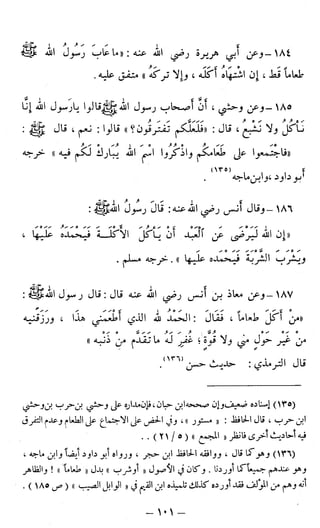 ١٨٤ - وعن أبي هريرة رضي الله عنه : « ما عَابَ رَسُولُ الله ﷺ
طعاماً قط ، إن اشتهاهُ أكَلَه ، وإلا تركَهُ » متفق عليه.
١٨٥ - وعن وحشي ، أنَّ أصحاب رسول الله ﷺ قالوا يارسول الله إنَّا
نَأْكُلُ ولا نَشْبَعُ ، قال : « فَلَعَلَّكم تَفترقون ؟ » قالوا : نعم ، قال ﷺ :
« فاجْتَمِعوا على طَعامِكم واذْكُروا اسْمَ الله يُبَارَكْ لَكُم فيه » خرجه
أبو داود ، وابن ماجه (١٣٥) .
١٨٦ - وقال أنس رضي الله عنه : قَالَ رسُولُ الله ﷺ :
« إن الله لَيَرْضَى عَنِ العَبْدِ أَنْ يَأْكُلَ الأَكْلَـةَ فَيَحْمَدُه عَلَيها ،
ويَشْرَبَ الشَّرْبَةَ فَيَحْمَدُه عليها » . خرجه مسلم .
١٨٧ - وعن معاذ بن أنس رضي الله عنه قال : قال رسول الله ﷺ :
« مَنْ أكَلَ طعاماً ، فَقَالَ : الحَمْدُ لله الذي أطْعَمَني هذا ، ورَزَقَنيه
مِنْ غَيرِ حَوْلٍ مني ولا قُوَّةٍ ؛ غُفِرَ لَهُ مَا تَقَدَّم مِنْ ذَنْبِه »
قال الترمذي : حديث حسن (١٣٦) .
(١٣٥) إسناده ضعيف وإن صححه ابن حبان ، فإن مداره على وحشي بن حرب بن وحشي
ابن حرب ، قال الحافظ : « مستور » ، وفي الحض على الاجتماع على الطعام وعدم التفرق
فيه أحاديث أخرى فانظر « المجمع » (٥ / ٢١) . .
(١٣٦) وهو كما قال ، ووافقه الحافظ ابن حجر ، ورواه أبو داود أيضاً وابن ماجه ،
وهو عندهم جميعاً كما أوردنا . وكان في الأصول « أو شرب » بدل « طعاماً » ! والظاهر
أنه وهم من المؤلف فقد أورده كذلك تلميذه ابن القيم في « الوابل الصيب » (ص ١٨٥) .
- ١٠١ -